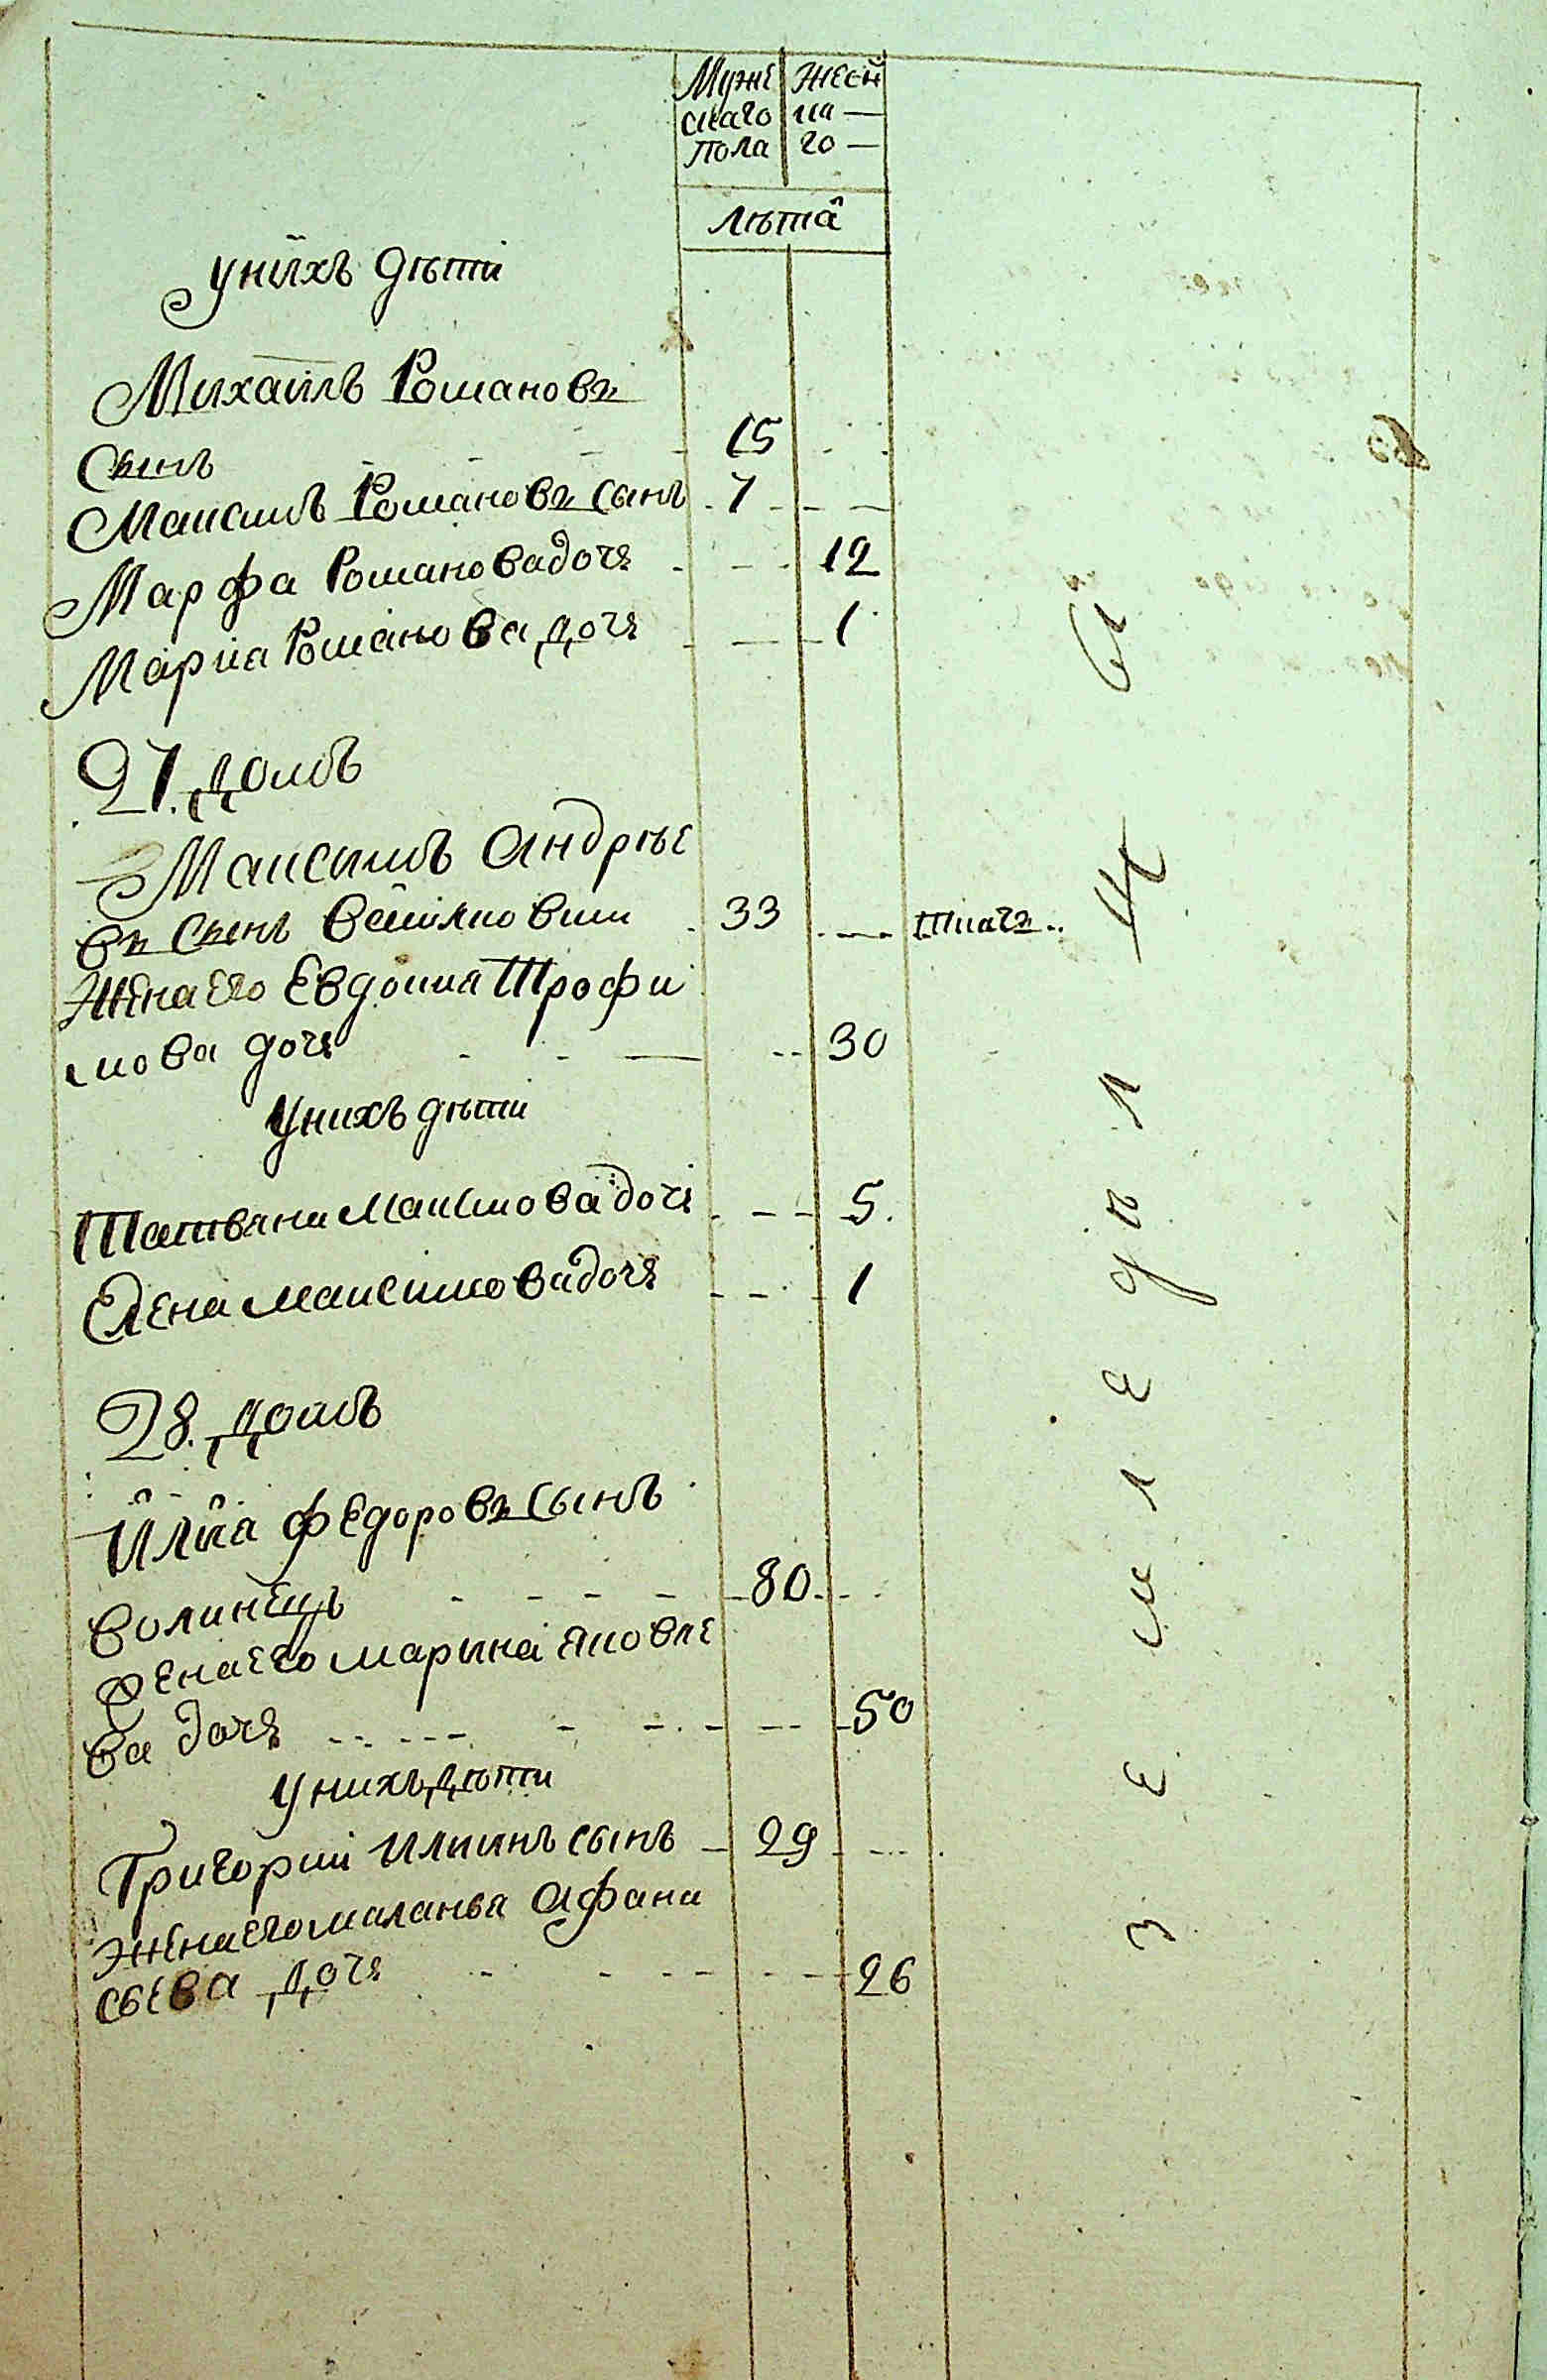 Муже Женс
скаго на —
пола го —
лѣта
у нихъ дѣти
Михаилъ Романовъ
сынъ 15
Максимъ Романовъ сынъ 7
Марфа Романова дочь 12
Мариа Романова дочь 1
27. домъ
Максимъ Андрѣе
въ сынъ 33 ткачъ
Жена его Евдокиа Трофи
мова дочь 30
у нихъ дѣти
Татьяна Максимова дочь 5.
Елена Максимова дочь 1
28. домъ
Илиа Федоровъ сынъ
Волинецъ 80.
Жена его Марина Яковле
ва дочь 50
у нихъ дѣти
Григорий Илиинъ сынъ 29
жена его Маланья Афана
сьева дочь 26
земледѣлцы